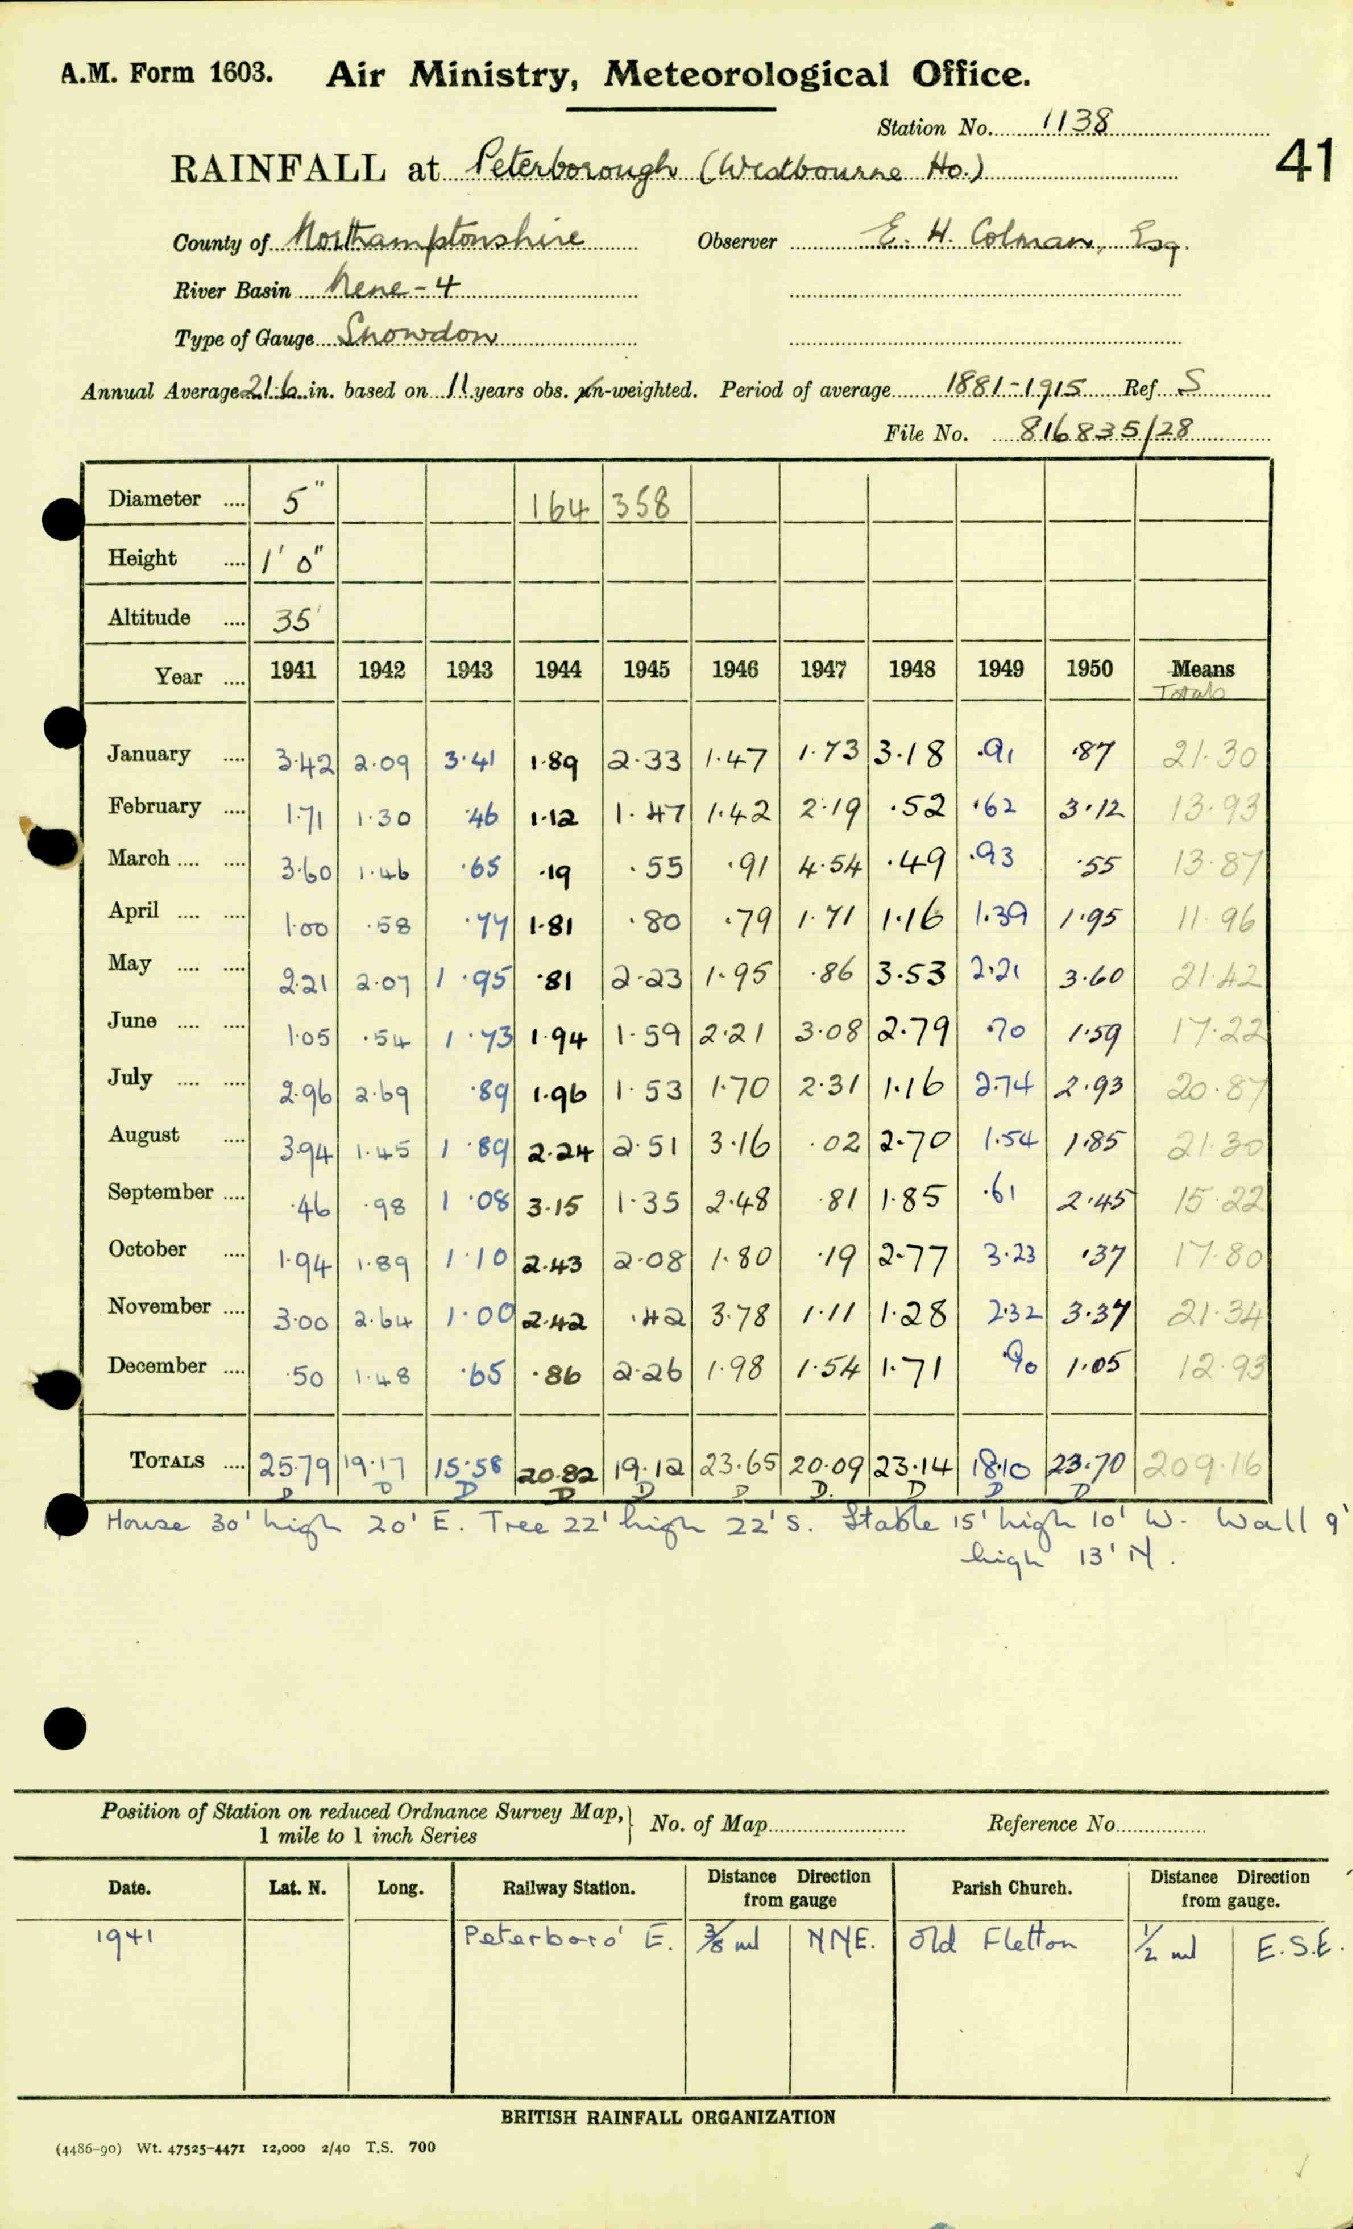 A.M. Form 1603. Air Ministry, Meteorological Office.
Station No. 1138
41
RAINFALL at Peterborough (Westbourne Ho.)
County of Northamptonshire Observer E. H. Colman, Esq.
River Basin Nene-4
Type of Gauge Snowdon
Annual Average 21.6 in. based on 11 years obs. un-weighted. Period of average 1881-1915 Ref S
File No. 816835/28
Diameter .... 5" 164 358
Height .... 1' 0"
Altitude .... 35'
Year .... 1941 1942 1943 1944 1945 1946 1947 1948 1949 1950 Means
Totals
January .... 3.42 2.09 3.41 1.89 2.33 1.47 1.73 3.18 .91 .87 21.30
February .... 1.71 1.30 .46 1.12 1.47 1.42 2.19 .52 .62 3.12 13.93
March .... .... 3.60 1.46 .65 .19 .55 .91 4.54 .49 .93 .55 13.87
April .... .... 1.00 .58 .77 1.81 .80 .79 1.71 1.16 1.39 1.95 11.96
May .... .... 2.21 2.07 1.95 .81 2.23 1.95 .86 3.53 2.21 3.60 21.42
June .... .... 1.05 .54 1.73 1.94 1.59 2.21 3.08 2.79 .70 1.59 17.22
July .... .... 2.96 2.69 .89 1.96 1.53 1.70 2.31 1.16 2.74 2.93 20.87
August .... 3.94 1.45 1.89 2.24 2.51 3.16 .02 2.70 1.54 1.85 21.30
September .... .46 .98 1.08 3.15 1.35 2.48 .81 1.85 .61 2.45 15.22
October .... 1.94 1.89 1.10 2.43 2.08 1.80 .19 2.77 3.23 .37 17.80
November .... 3.00 2.64 1.00 2.42 .42 3.78 1.11 1.28 2.32 3.37 21.34
December .... .50 1.48 .65 .86 2.26 1.98 1.54 1.71 .90 1.05 12.93
TOTALS .... 25.79 19.17 15.58 20.82 19.12 23.65 20.09 23.14 18.10 23.70 209.16
D D D D D D D. D D D
House 30' high 20' E. Tree 22' high 22' S. Stable 15' high 10' W. Wall 9'
high 13' N.
Position of Station on reduced Ordnance Survey Map, } No. of Map Reference No.
1 mile to 1 inch Series
Date. Lat. N. Long. Railway Station. Distance from gauge Direction Parish Church. Distance Direction from gauge.
1941 Peterboro' E. 3/8 ml NNE. Old Fletton 1/2 ml E.S.E.
BRITISH RAINFALL ORGANIZATION
(4486-90) Wt. 47525-4471 12,000 2/40 T.S. 700